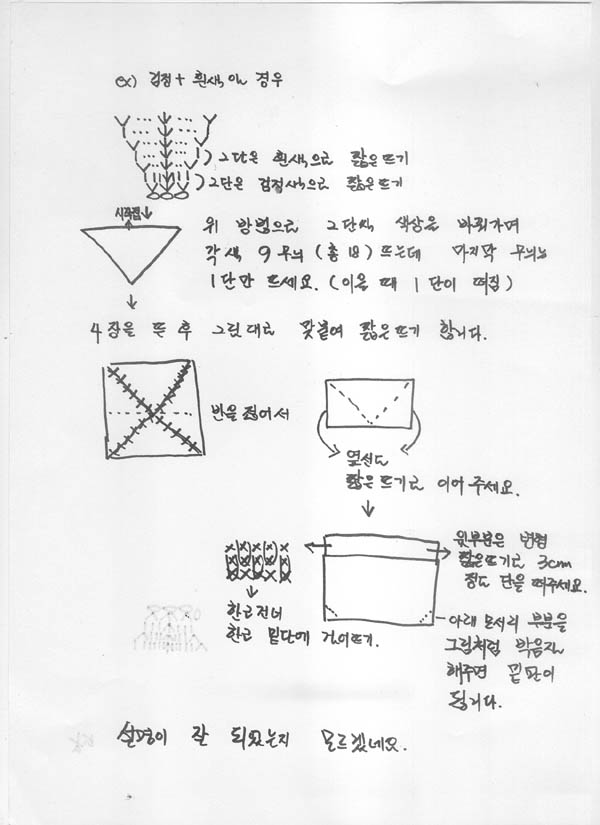 ex) 검정+ 흰색인 경우
2단은 흰색으로 짧은뜨기
2단은 검정색으로 짧은뜨기
시작점
위 방법으로 2단씩 색상을 바꿔가며
각색 9무늬 (총 18) 뜨는데 마지막 무늬는
1단만 뜨세요. (이을 때 1단이 떠짐)
4장을 뜬 후 그림대로 맞붙여 짧은뜨기 합니다.
반을 접어서
옆선도
짧은뜨기로 이어주세요.
윗부분은 변형
짧은뜨기로 3cm
정도 단을 떠주세요.
한코건너
한코 밑단에 걸어뜨기.
아래 모서리 부분을
그림처럼 박음질
해주면 밑판이
됩니다.
설명이 잘 되었는지 모르겠네요.